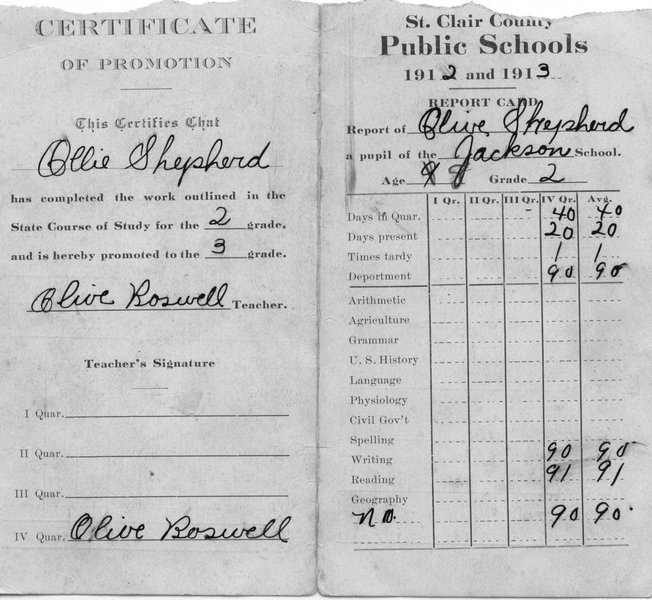 CERTIFICATE
OF PROMOTION
This Certifies That
Ollie Shepherd
has completed the work outlined in the
State Course of Study for the 2 grade,
and is hereby promoted to the 3 grade.
Olive Roswell Teacher.
Teacher's Signature
I Quar.
II Quar.
III Quar.
IV Quar. Olive Roswell
St. Clair County
Public Schools
1912 and 1913
REPORT CARD
Report of Olive Shepherd
a pupil of the Jackson School.
Age 8 Grade 2
I Qr. II Qr. III Qr. IV Qr. Avg.
Days in Quar. 40 40
Days present 20 20
Times tardy 1 1
Deportment 90 90
Arithmetic
Agriculture
Grammar
U. S. History
Language
Physiology
Civil Gov't
Spelling
Writing 90 90
Reading 91 91
Geography
90 90